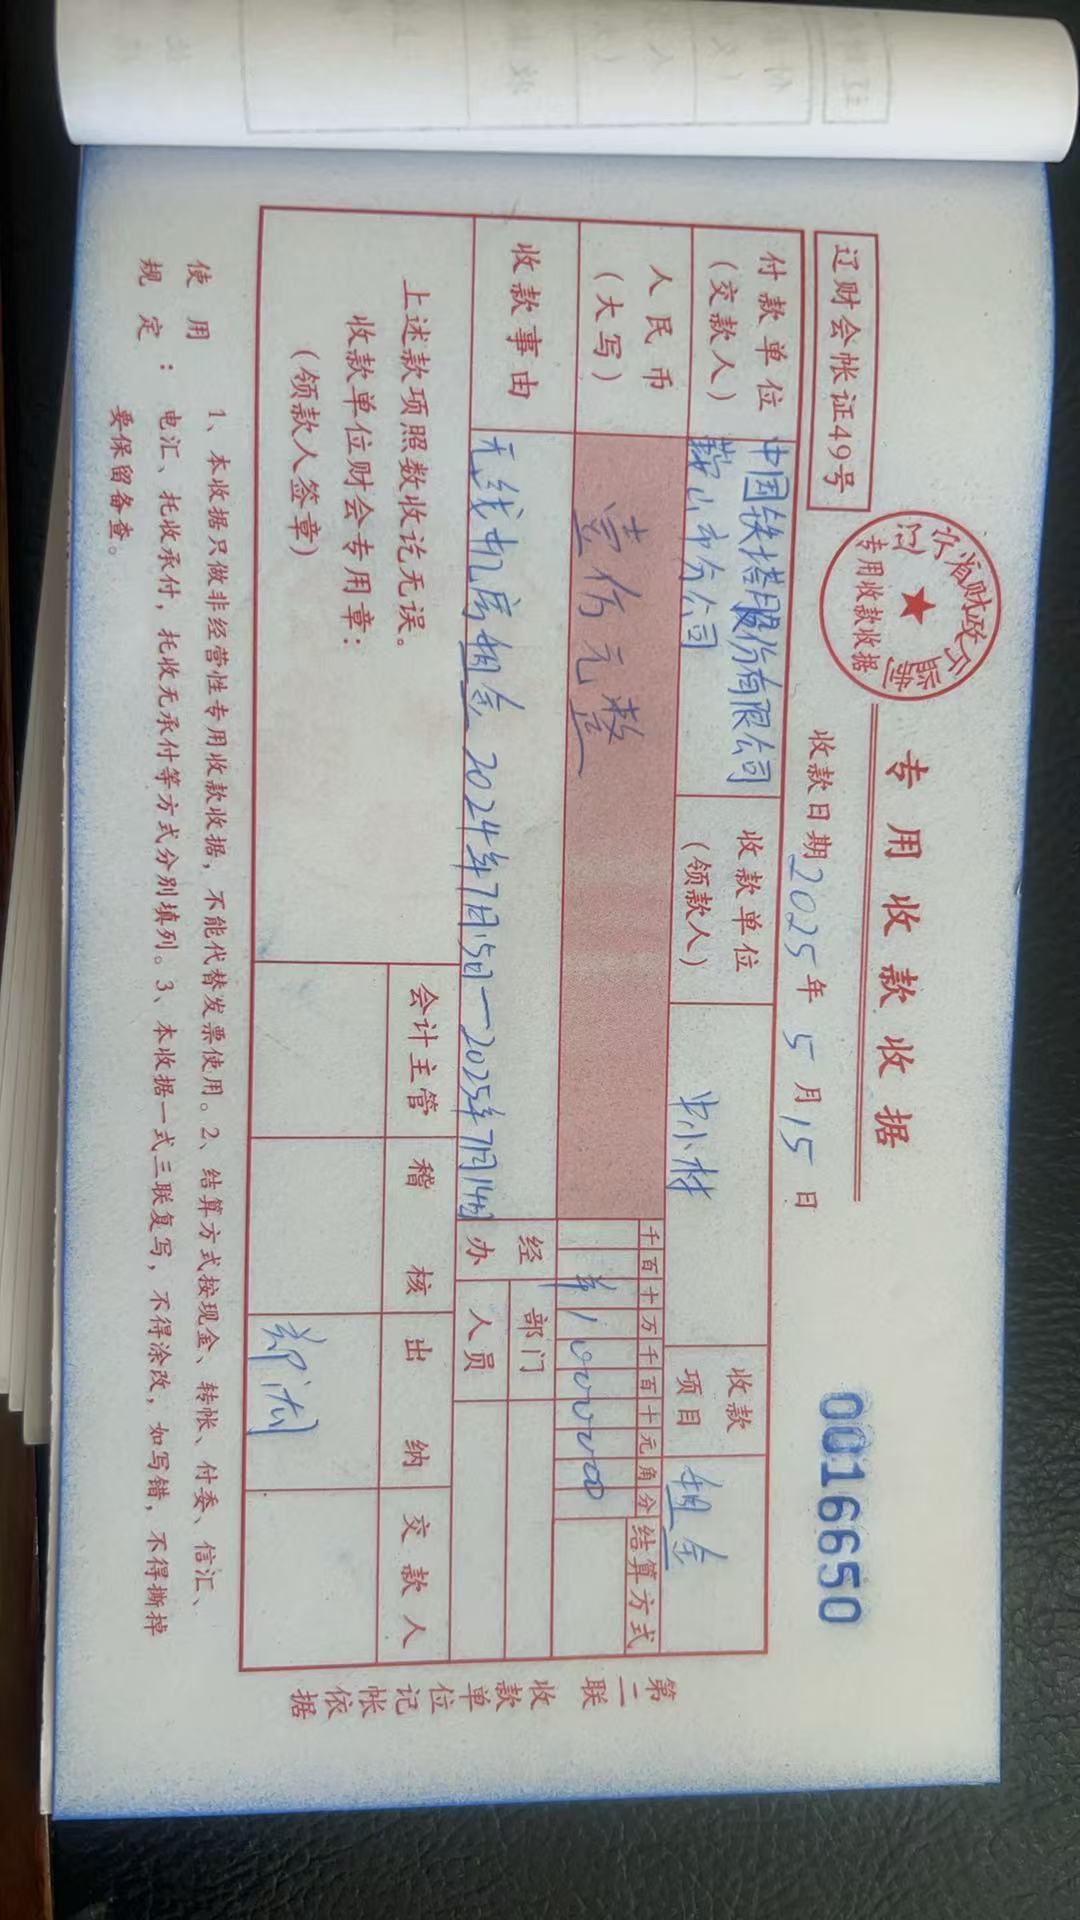 辽财会帐证49号
辽宁省财政厅
监制
专用收款收据
专用收款收据
收款日期2025年5月15日
0016650
付款单位
(交款人)
中国铁塔股份有限公司
鞍山市分公司
收款单位
(领款人)
收款
项目
租金
人民币
(大写)
壹仟元整
千百十万千百十元角分
¥100000
结算方式
收款事由
无线机房租金2024年7月15日—2025年7月14日
经办
部门
人员
上述款项照数收讫无误。
收款单位财会专用章:
(领款人签章)
会计主管
稽核
出纳
交款人
第二联 收款单位记帐依据
使用规定:
1、本收据只做非经营性专用收款收据,不能代替发票使用。2、结算方式按现金、转帐、付委、信汇、
电汇、托收承付,托收无承付等方式分别填列。3、本收据一式三联复写,不得涂改,如写错,不得撕掉
要保留备查。